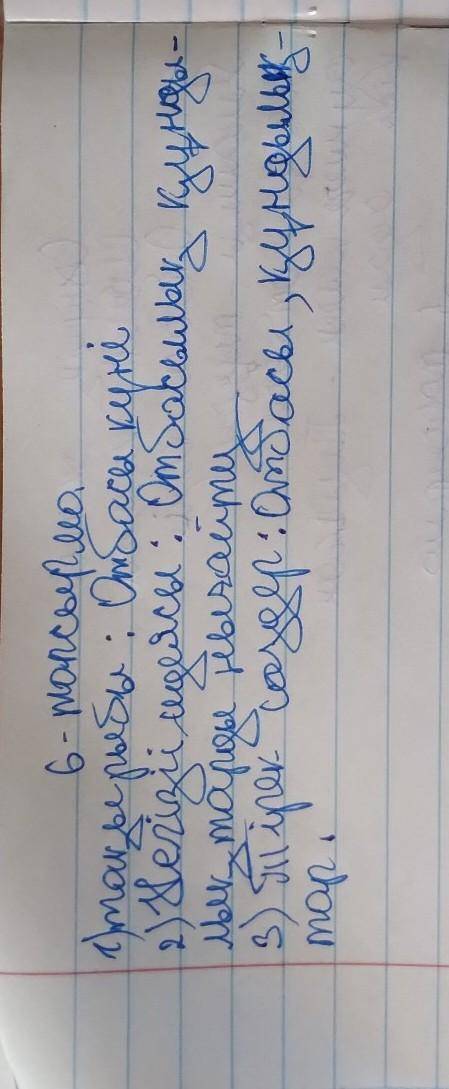 6-тапсырма.
1) тақырыбы: Отбасы күні
2) Негізгі идеясы: Отбасылық құнды-
лықтарды нығайту
3) Тірек сөздер: Отбасы, құндылық-
тар.